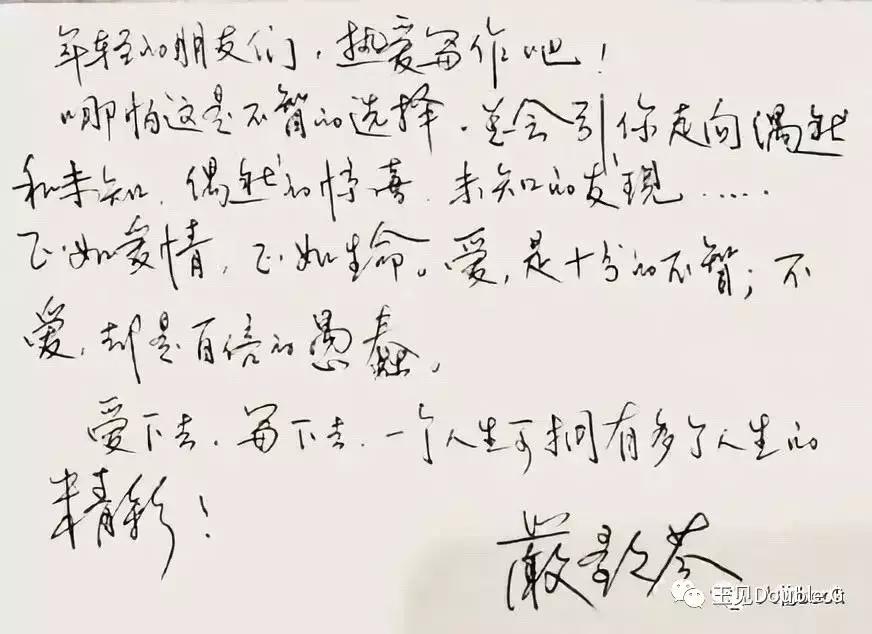 年轻的朋友们，热爱写作吧！
哪怕这是不智的选择，总会引你走向偶然
和未知，偶然的惊喜，未知的发现……
正如爱情，正如生命。爱，是十分的不智；不
爱，却是百倍的愚蠢。
爱下去，写下去，一个人生可拥有多个人生的
精彩！
嚴歌苓
玉见Double